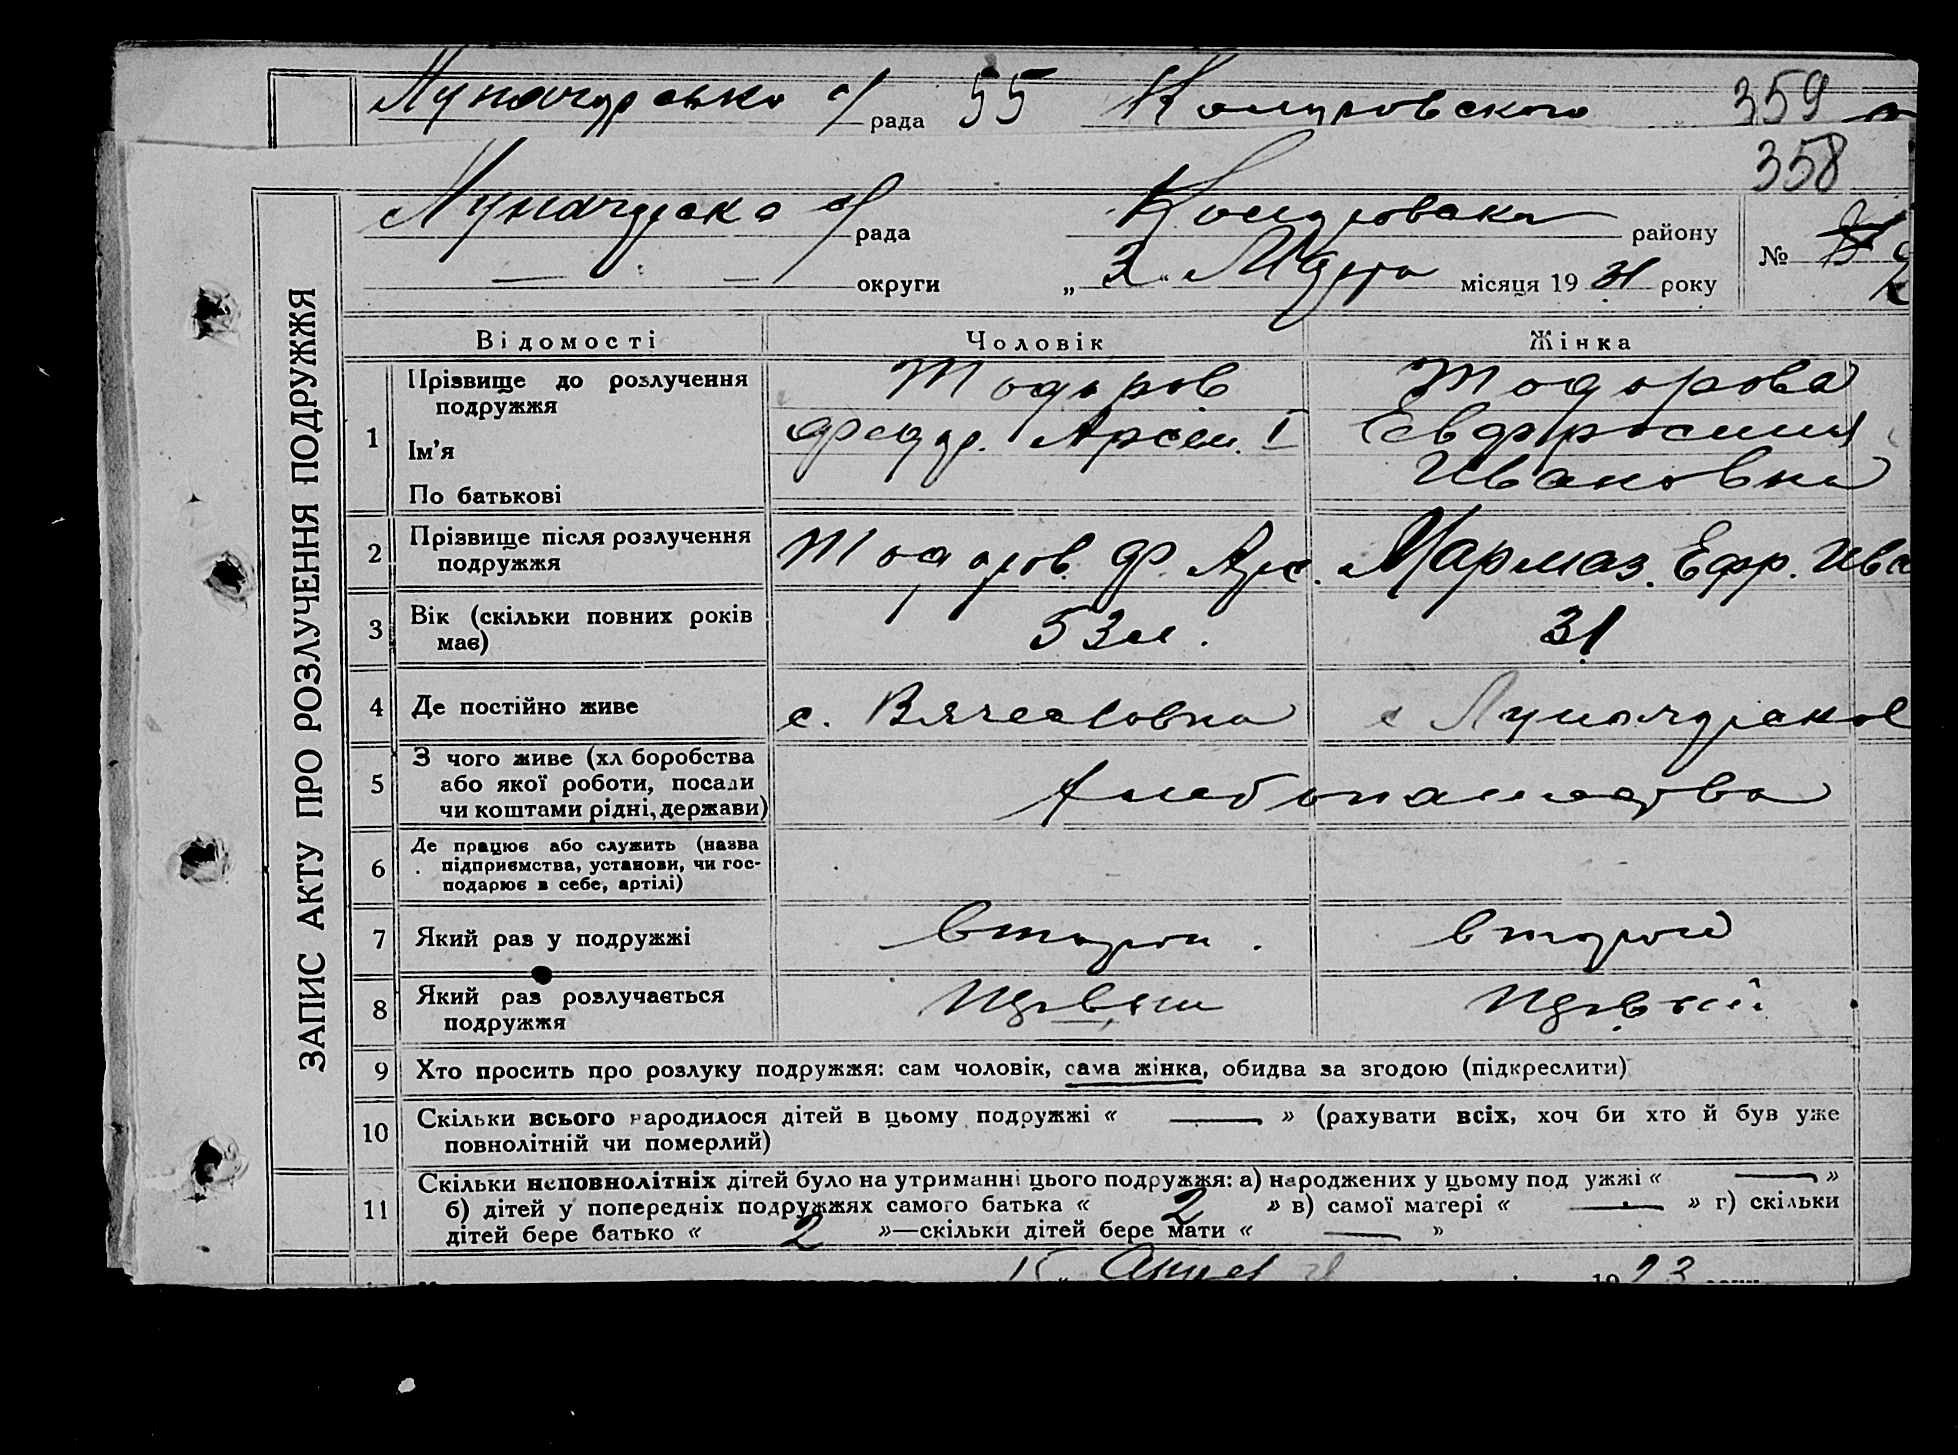 Луначарська с/рада 55 Коларовского 359
358
Луначарска с/рада Коларовска району №
— — округи „3“ Марта місяця 1931 року
Відомості Чоловік Жінка
1 Прізвище до розлучення подружжя Тодоров Тодорова
Ім'я Федор. Арсен. Евфросиния
По батькові Ивановна
2 Прізвище після розлучення подружжя Тодоров Ф. Арс. Мармаз. Ефр. Ива
3 Вік (скільки повних років має) 53 л. 31
4 Де постійно живе с. Вячеславка с Луначарское
5 З чого живе (хл боробства або якої роботи, посади чи коштами рідні, держави) хлебопашества
6 Де працює або служить (назва підприємства, установи, чи господарює в себе, артілі)
7 Який раз у подружжі второй. второй
8 Який раз розлучається подружжя первый первый
9 Хто просить про розлуку подружжя: сам чоловік, сама жінка, обидва за згодою (підкреслити)
10 Скільки всього народилося дітей в цьому подружжі « — » (рахувати всіх, хоч би хто й був уже
повнолітній чи померлий)
11 Скільки неповнолітніх дітей було на утриманні цього подружжя: а) народжених у цьому под ужжі « — »
б) дітей у попередніх подружжях самого батька « 2 » в) самої матері « — » г) скільки
дітей бере батько « 2 »—скільки дітей бере мати « — »
1923
ЗАПИС АКТУ ПРО РОЗЛУЧЕННЯ ПОДРУЖЖЯ